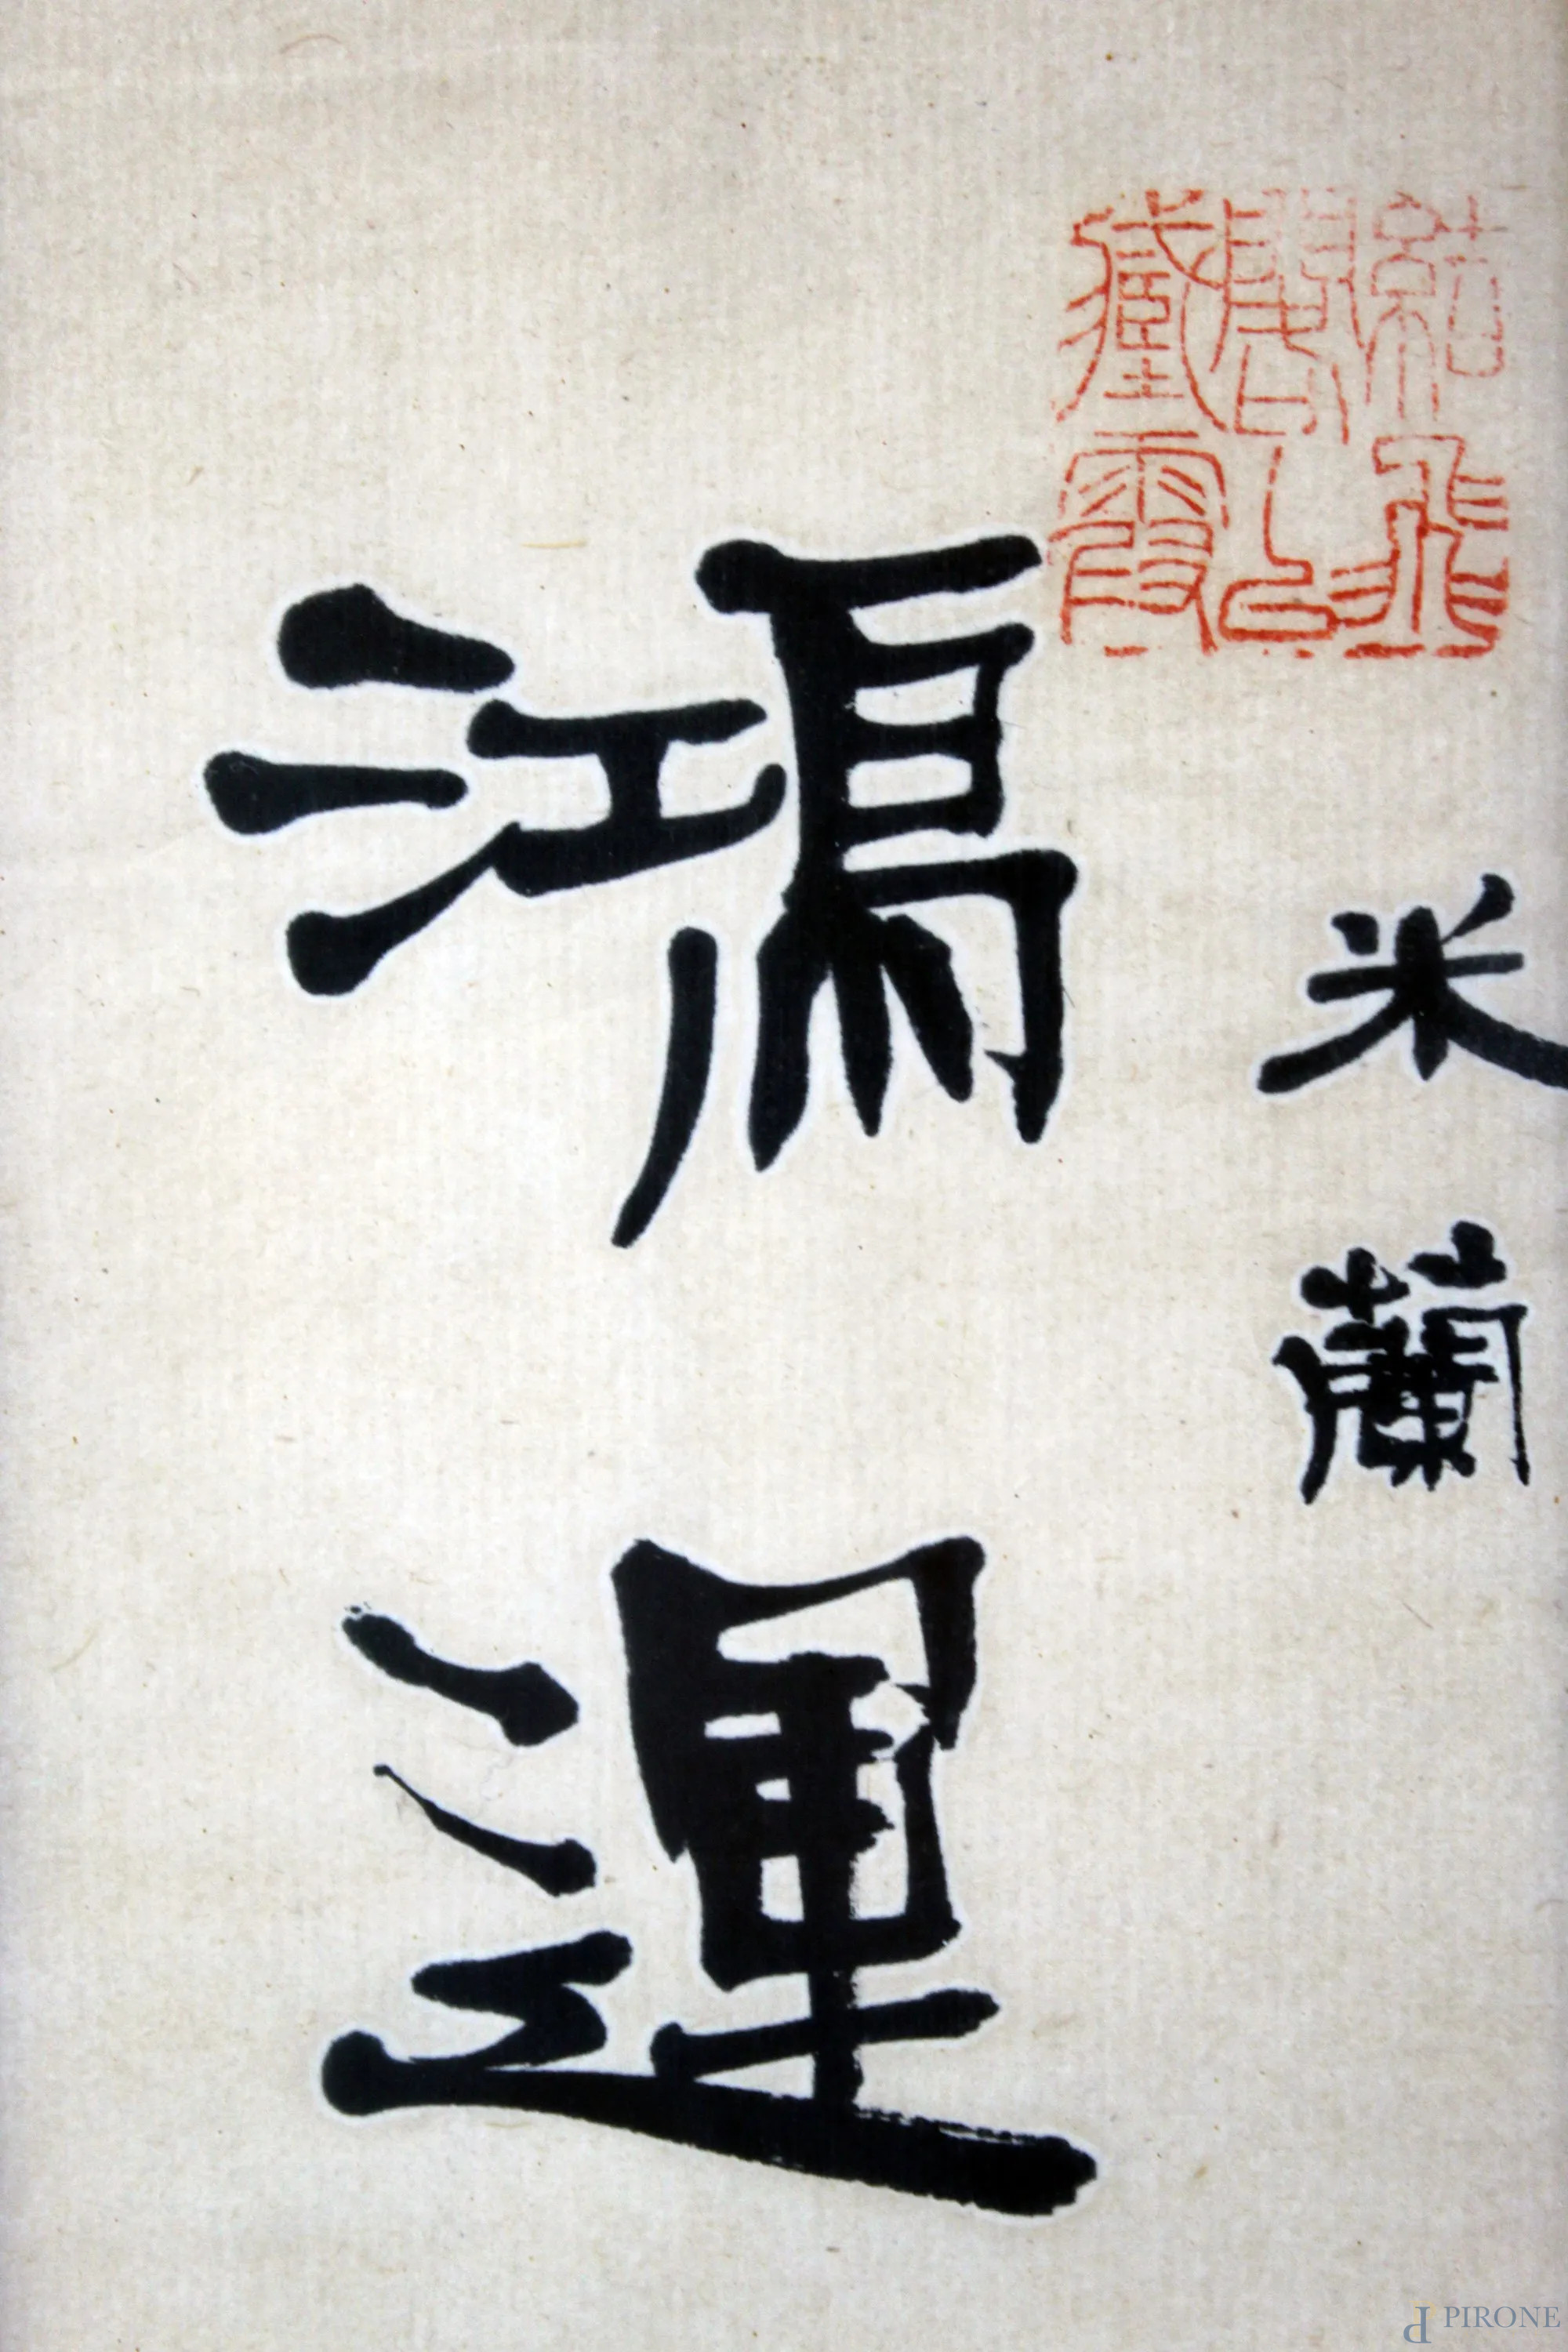 米蘭
鴻運
PIRONE